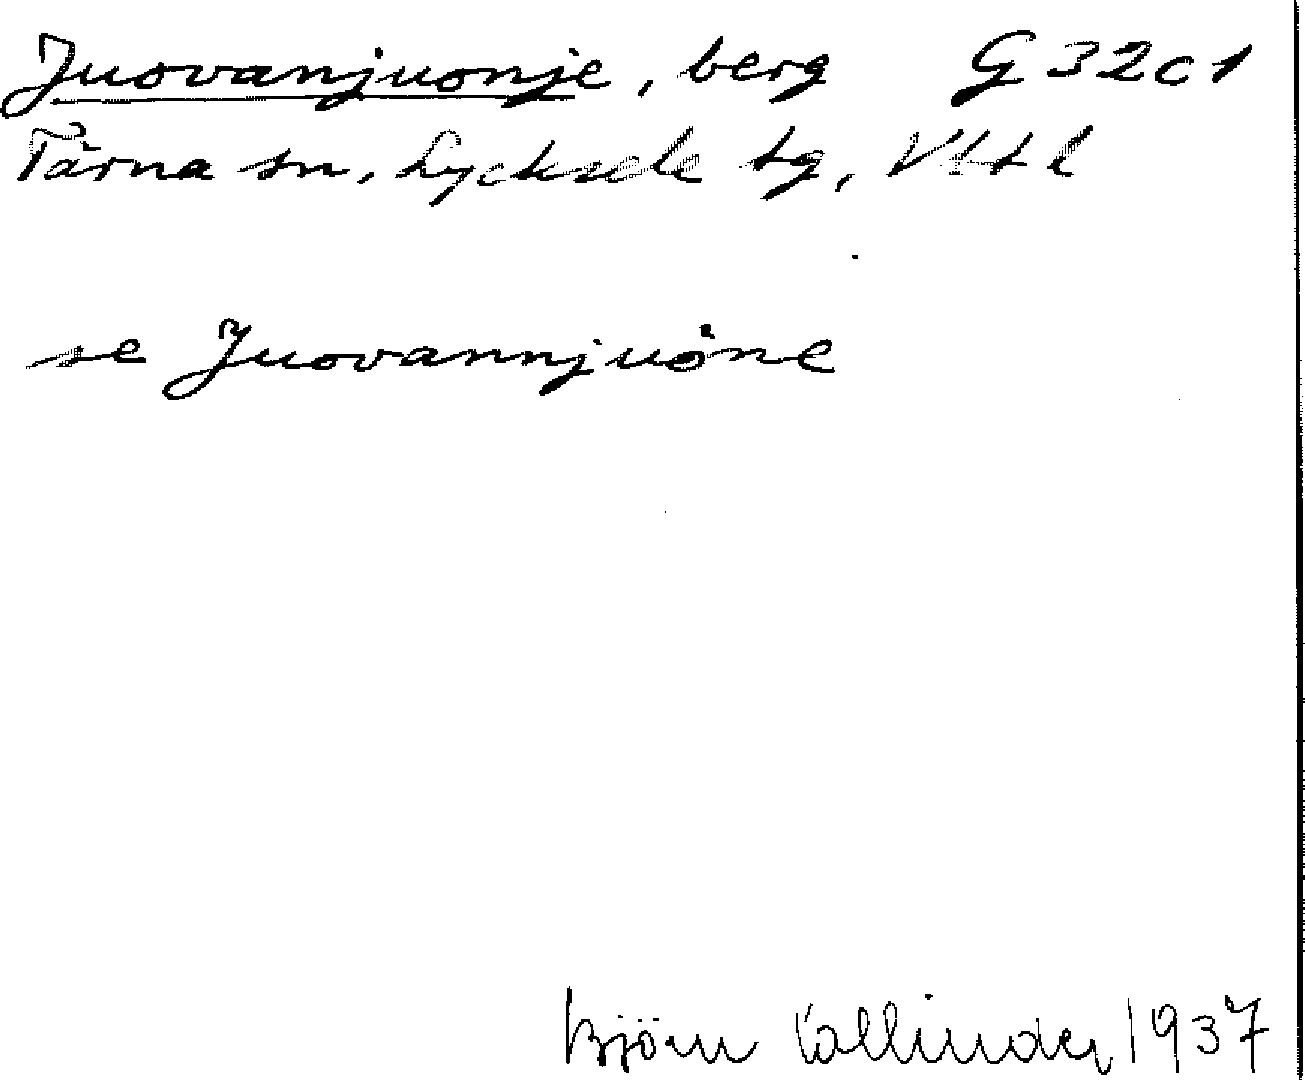 Juovanjuonje, berg G 32 c 1
Tärna sn, Lycksele lg, Vbtl
se Juovannjuöne
Björn Collinder 1937